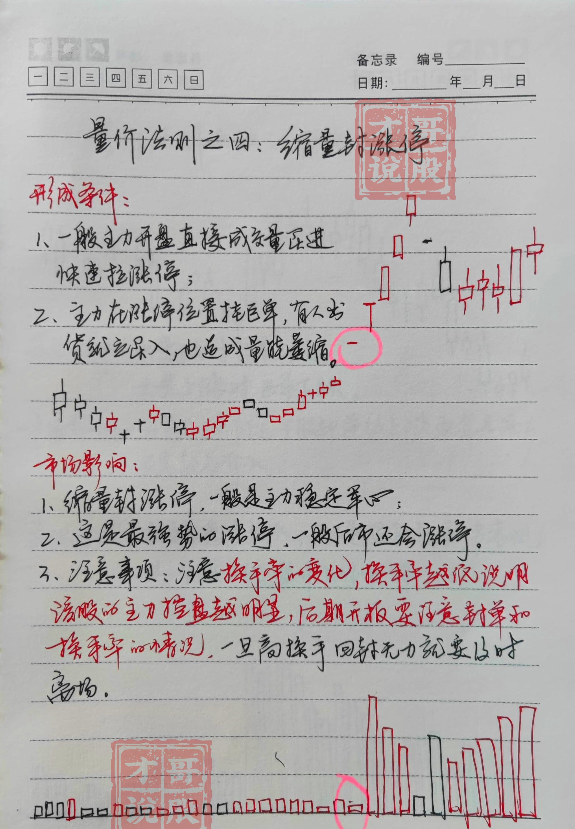 备忘录 编号
一 二 三 四 五 六 日
日期: 年 月 日
量价法则之四：缩量封涨停
才哥说股
形成条件：
1、一般主力开盘直接成交量压进
快速拉涨停；
2、主力在涨停位置挂巨单，有人出
货就立马入，也造成量能萎缩。
市场影响：
1、缩量封涨停，一般是主力稳定军心；
2、这是最强势的涨停，一般后市还会涨停。
3、注意事项：注意换手率的变化，换手率越低说明
该股的主力控盘越明显，后期开板要注意封单和
换手率的情况，一旦高换手回封无力就要及时
离场。
才哥说股